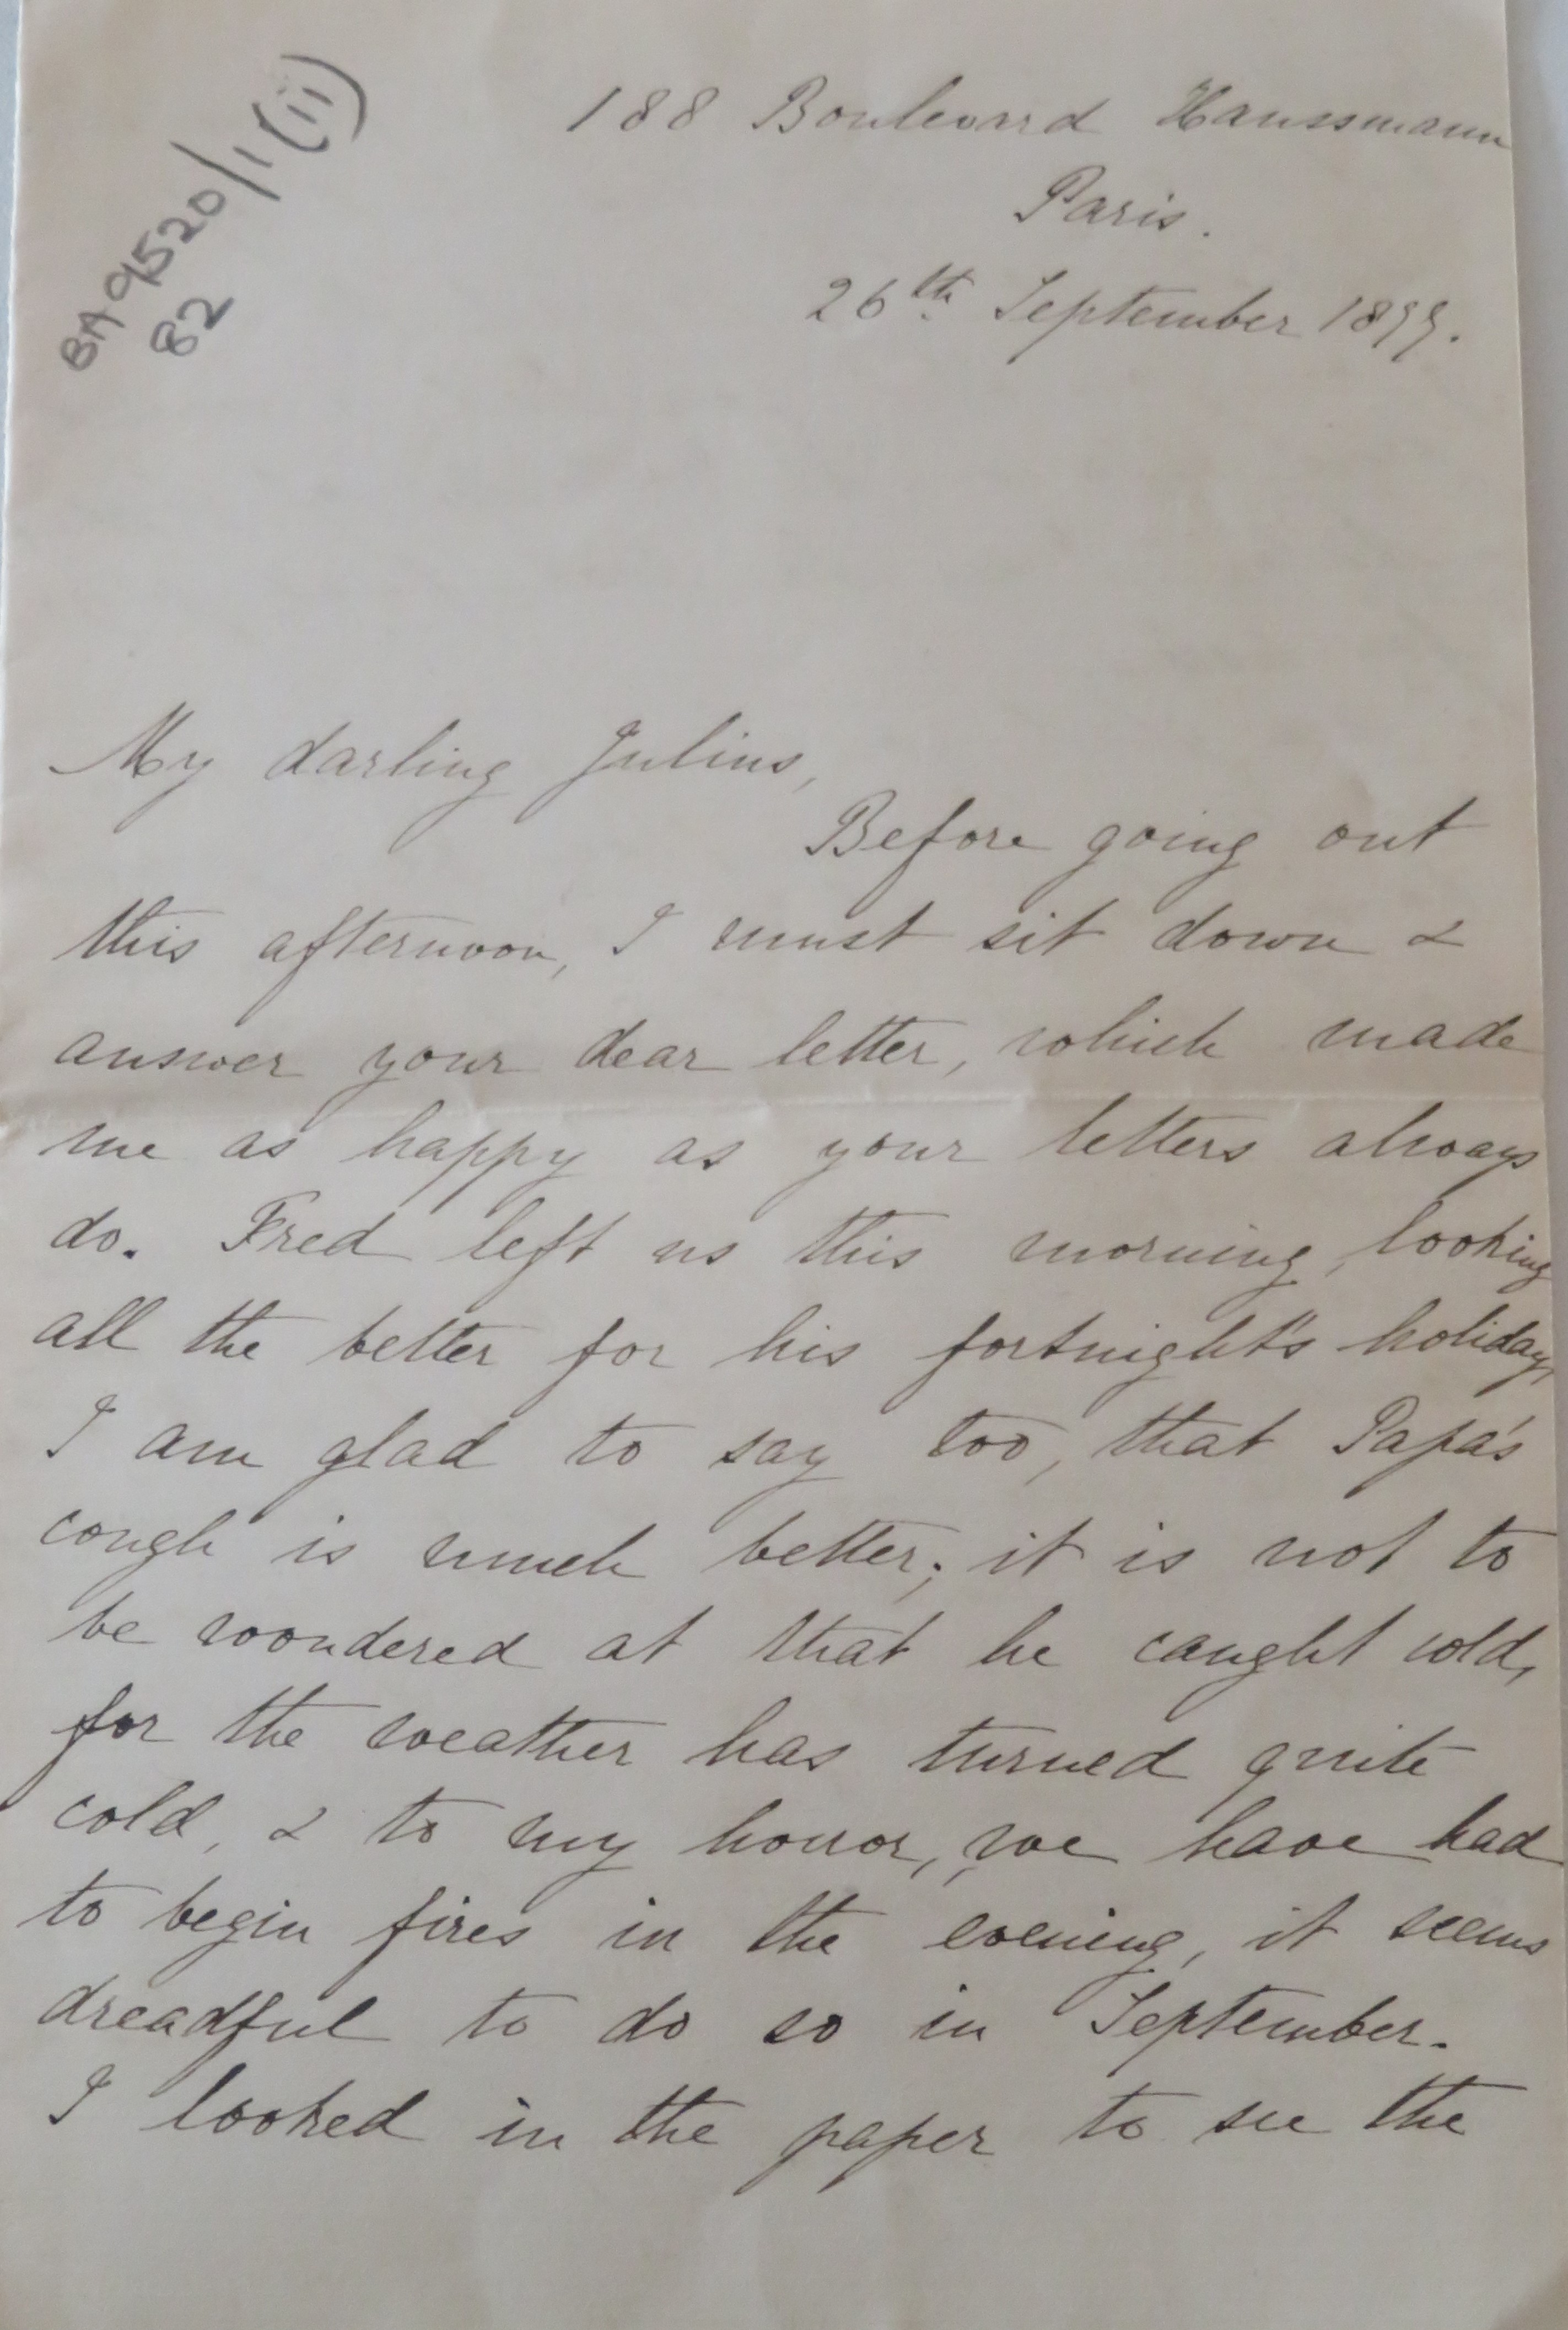 BA9520/1(ii)
82
188 Boulevard Haussmann
Paris.
26th September 1899.
My darling Julius,
Before going out
this afternoon, I must sit down &
answer your dear letter, which made
me as happy as your letters always
do. Fred left us this morning, looking
all the better for his fortnight's holiday,
I am glad to say too, that Papa's
cough is much better; it is not to
be wondered at that he caught cold,
for the weather has turned quite
cold, & to my horror, we have had
to begin fires in the evening, it seems
dreadful to do so in September.
I looked in the paper to see the